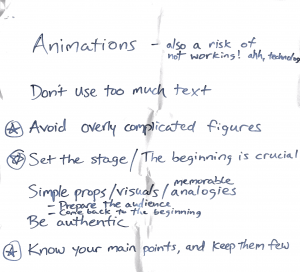 Animations - also a risk of
not working! ahh, technology
Don't use too much text
Avoid overly complicated figures
Set the stage / The beginning is crucial
Simple props / visuals / memorable analogies
- Prepare the audience
- Come back to the beginning
Be authentic
Know your main points, and keep them few